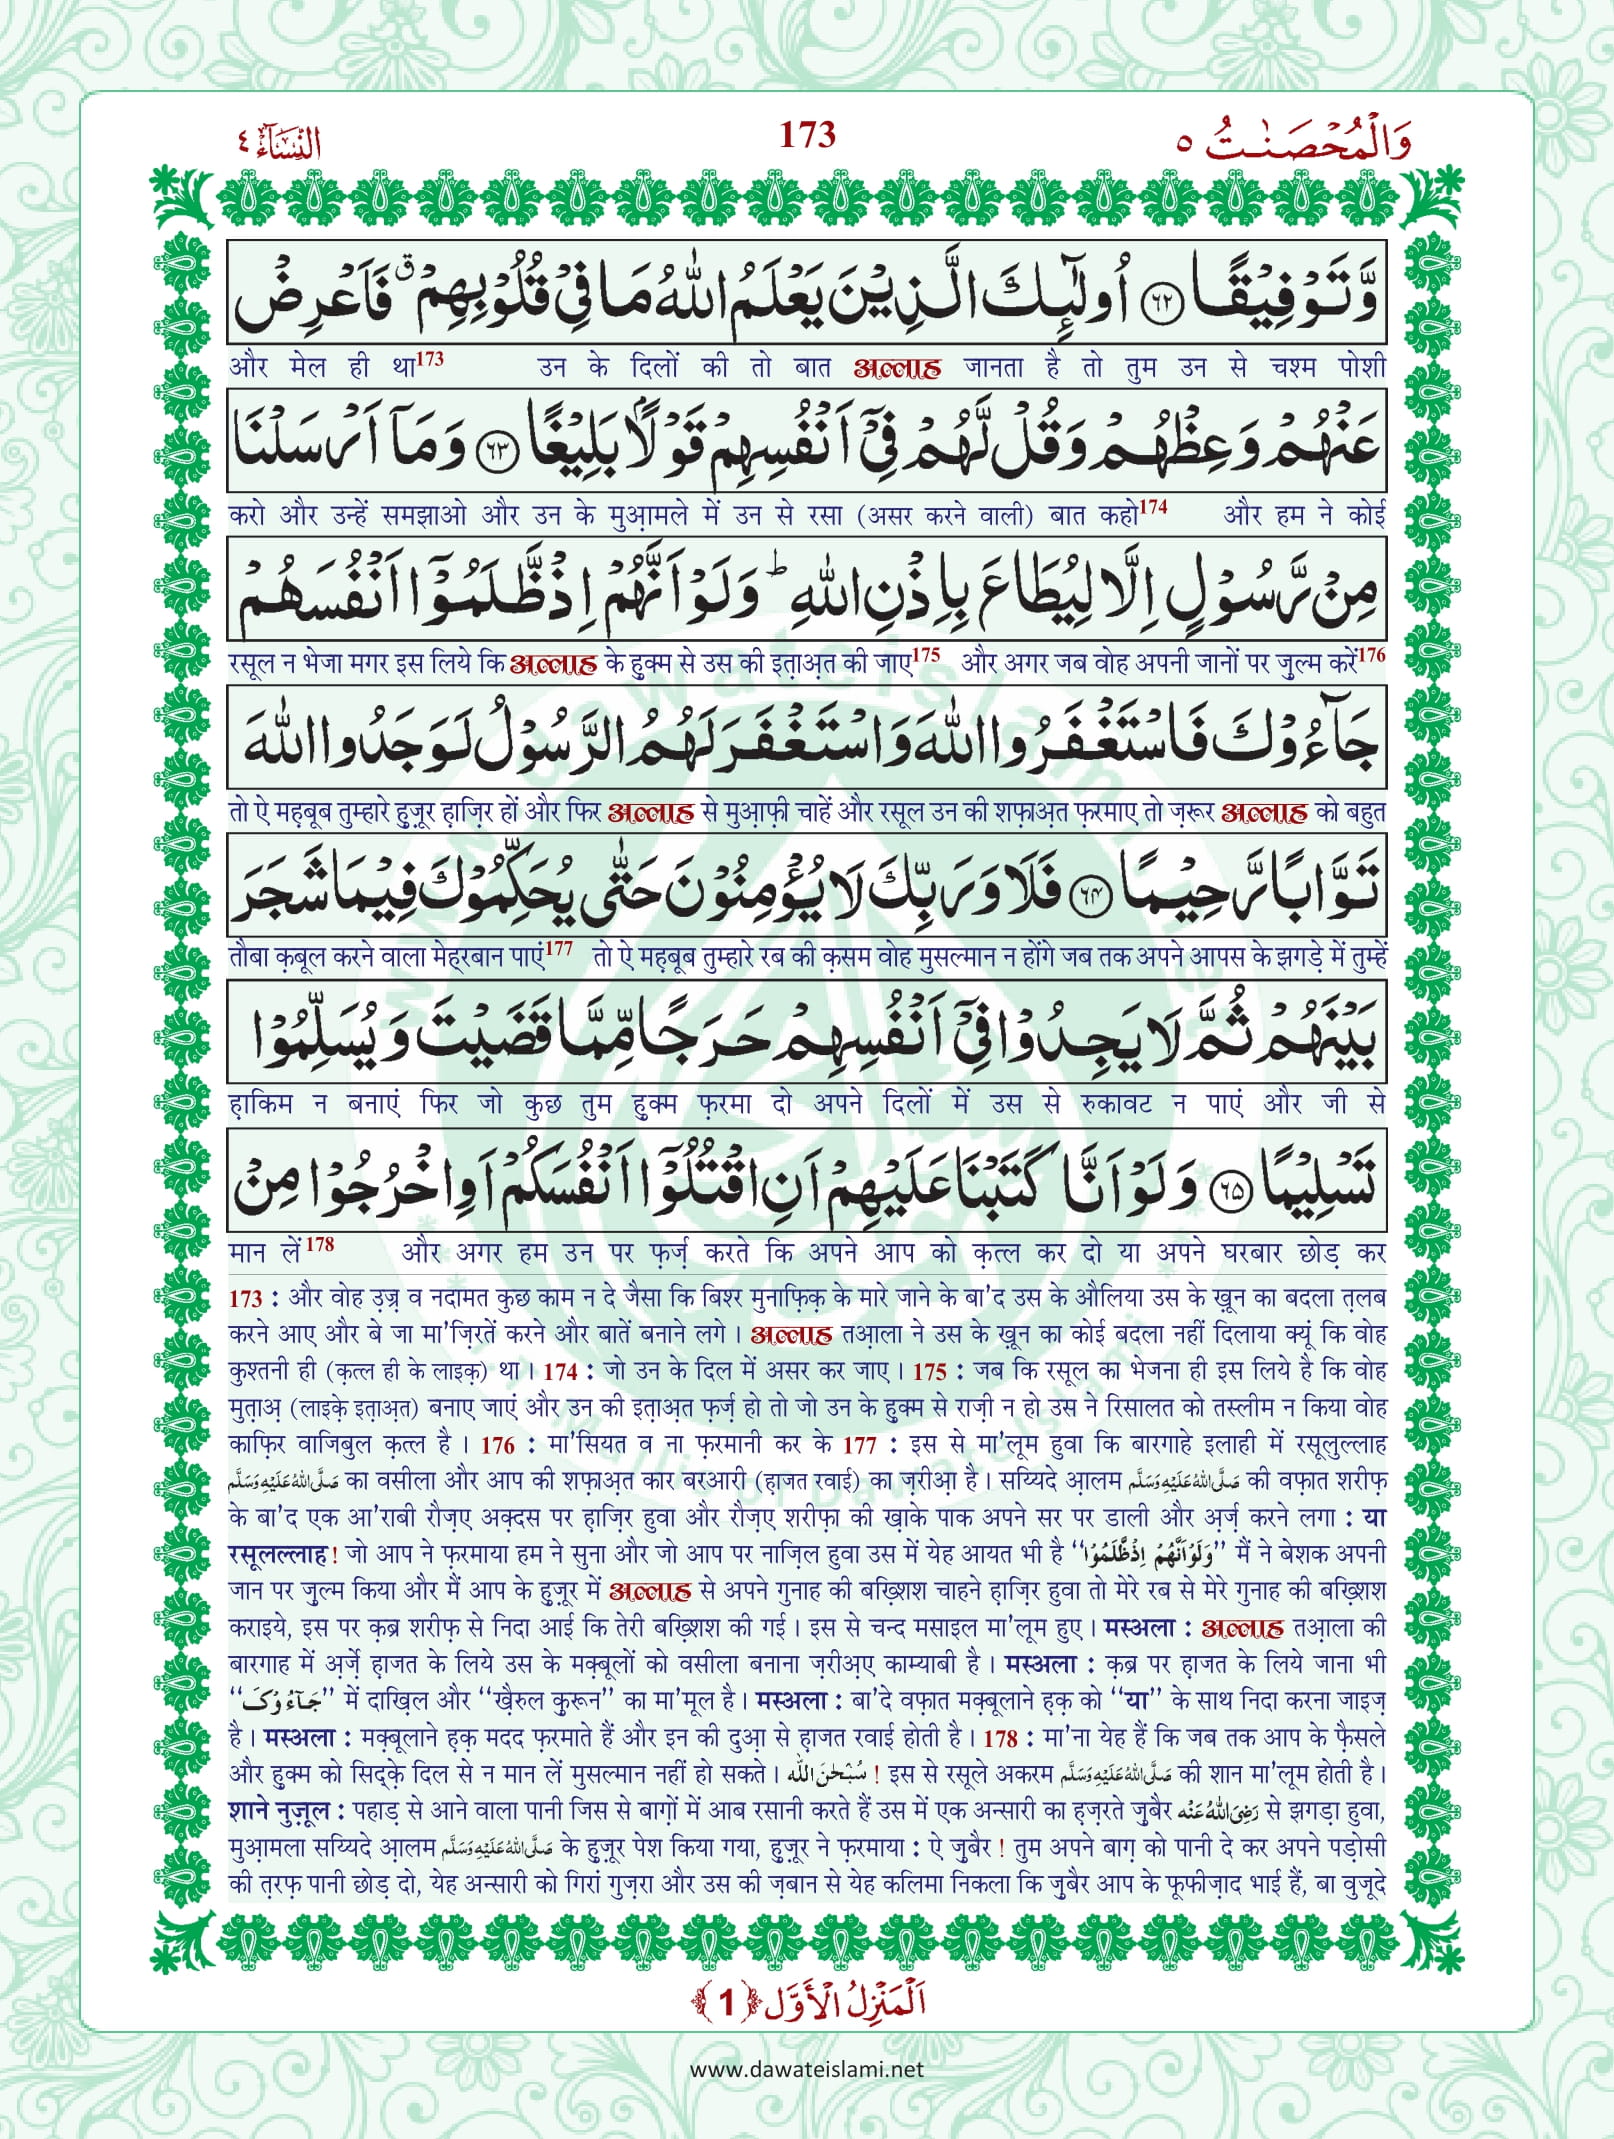 وَالْمُحْصَنٰتُ ٥
173
النِّسَآءُ ٤
وَّتَوْفِیْقًا ﴿٦٢﴾ اُولٰٓىِٕكَ الَّذِیْنَ یَعْلَمُ اللّٰهُ مَا فِیْ قُلُوْبِهِمْ ۗ فَاَعْرِضْ
और मेल ही था173 उन के दिलों की तो बात अल्लाह जानता है तो तुम उन से चश्म पोशी
عَنْهُمْ وَعِظْهُمْ وَقُلْ لَّهُمْ فِیْۤ اَنْفُسِهِمْ قَوْلًۢا بَلِیْغًا ﴿٦٣﴾ وَمَاۤ اَرْسَلْنَا
करो और उन्हें समझाओ और उन के मुआ़मले में उन से रसा (असर करने वाली) बात कहो174 और हम ने कोई
مِنْ رَّسُوْلٍ اِلَّا لِیُطَاعَ بِاِذْنِ اللّٰهِ ؕ وَلَوْ اَنَّهُمْ اِذْ ظَّلَمُوْۤا اَنْفُسَهُمْ
रसूल न भेजा मगर इस लिये कि अल्लाह के हुक्म से उस की इत़ाअ़त की जाए175 और अगर जब वोह अपनी जानों पर ज़ुल्म करें176
جَآءُوْكَ فَاسْتَغْفَرُوا اللّٰهَ وَاسْتَغْفَرَ لَهُمُ الرَّسُوْلُ لَوَجَدُوا اللّٰهَ
तो ऐ मह़बूब तुम्हारे हुज़ूर ह़ाज़िर हों और फिर अल्लाह से मुआ़फ़ी चाहें और रसूल उन की शफ़ाअ़त फ़रमाए तो ज़रूर अल्लाह को बहुत
تَوَّابًا رَّحِیْمًا ﴿٦٤﴾ فَلَا وَرَبِّكَ لَا یُؤْمِنُوْنَ حَتّٰى یُحَكِّمُوْكَ فِیْمَا شَجَرَ
तौबा क़बूल करने वाला मेह्‌रबान पाएं177 तो ऐ मह़बूब तुम्हारे रब की क़सम वोह मुसल्मान न होंगे जब तक अपने आपस के झगड़े में तुम्हें
بَیْنَهُمْ ثُمَّ لَا یَجِدُوْا فِیْۤ اَنْفُسِهِمْ حَرَجًا مِّمَّا قَضَیْتَ وَیُسَلِّمُوْا
ह़ाकिम न बनाएं फिर जो कुछ तुम हुक्म फ़रमा दो अपने दिलों में उस से रुकावट न पाएं और जी से
تَسْلِیْمًا ﴿٦٥﴾ وَلَوْ اَنَّا كَتَبْنَا عَلَیْهِمْ اَنِ اقْتُلُوْۤا اَنْفُسَكُمْ اَوِ اخْرُجُوْا مِنْ
मान लें178 और अगर हम उन पर फ़र्ज़ करते कि अपने आप को क़त्ल कर दो या अपने घरबार छोड़ कर
173 : और वोह उ़ज़्र व नदामत कुछ काम न दे जैसा कि बिश्र मुनाफ़िक़ के मारे जाने के बा'द उस के औलिया उस के ख़ून का बदला त़लब
करने आए और बे जा मा'ज़िरतें करने और बातें बनाने लगे । अल्लाह तआ़ला ने उस के ख़ून का कोई बदला नहीं दिलाया क्यूं कि वोह
कुश्तनी ही (क़त्ल ही के लाइक़) था । 174 : जो उन के दिल में असर कर जाए । 175 : जब कि रसूल का भेजना ही इस लिये है कि वोह
मुत़ाअ़ (लाइक़े इत़ाअ़त) बनाए जाएं और उन की इत़ाअ़त फ़र्ज़ हो तो जो उन के हुक्म से राज़ी न हो उस ने रिसालत को तस्लीम न किया वोह
काफ़िर वाजिबुल क़त्ल है । 176 : मा'सियत व ना फ़रमानी कर के 177 : इस से मा'लूम हुवा कि बारगाहे इलाही में रसूलुल्लाह
صَلَّى اللّٰهُ عَلَيْهِ وَسَلَّم का वसीला और आप की शफ़ाअ़त कार बरआरी (ह़ाजत रवाई) का ज़रीआ़ है । सय्यिदे आ़लम صَلَّى اللّٰهُ عَلَيْهِ وَسَلَّم की वफ़ात शरीफ़
के बा'द एक आ'राबी रौज़ए अक़्दस पर ह़ाज़िर हुवा और रौज़ए शरीफ़ा की ख़ाके पाक अपने सर पर डाली और अ़र्ज़ करने लगा : या
रसूलल्लाह ! जो आप ने फ़रमाया हम ने सुना और जो आप पर नाज़िल हुवा उस में येह आयत भी है ‘‘وَلَوْ اَنَّهُمْ اِذْ ظَّلَمُوْا’’ मैं ने बेशक अपनी
जान पर ज़ुल्म किया और मैं आप के हुज़ूर में अल्लाह से अपने गुनाह की बख़्शिश चाहने ह़ाज़िर हुवा तो मेरे रब से मेरे गुनाह की बख़्शिश
कराइये, इस पर क़ब्र शरीफ़ से निदा आई कि तेरी बख़्शिश की गई । इस से चन्द मसाइल मा'लूम हुए । मस्अला : अल्लाह तआ़ला की
बारगाह में अ़र्ज़े ह़ाजत के लिये उस के मक़्बूलों को वसीला बनाना ज़रीअ़ए काम्याबी है । मस्अला : क़ब्र पर ह़ाजत के लिये जाना भी
‘‘جَآءُوْكَ’’ में दाख़िल और ‘‘ख़ैरुल क़ुरून’’ का मा'मूल है । मस्अला : बा'दे वफ़ात मक़्बूलाने ह़क़ को ‘‘या’’ के साथ निदा करना जाइज़
है । मस्अला : मक़्बूलाने ह़क़ मदद फ़रमाते हैं और इन की दुआ़ से ह़ाजत रवाई होती है । 178 : मा'ना येह हैं कि जब तक आप के फ़ैसले
और हुक्म को सिद्क़े दिल से न मान लें मुसल्मान नहीं हो सकते । سُبْحٰنَ اللّٰه ! इस से रसूले अकरम صَلَّى اللّٰهُ عَلَيْهِ وَسَلَّم की शान मा'लूम होती है ।
शाने नुज़ूल : पहाड़ से आने वाला पानी जिस से बाग़ों में आब रसानी करते हैं उस में एक अन्सारी का ह़ज़रते ज़ुबैर رَضِىَ اللّٰهُ عَنْه से झगड़ा हुवा,
मुआ़मला सय्यिदे आ़लम صَلَّى اللّٰهُ عَلَيْهِ وَسَلَّم के हुज़ूर पेश किया गया, हुज़ूर ने फ़रमाया : ऐ ज़ुबैर ! तुम अपने बाग़ को पानी दे कर अपने पड़ोसी
की त़रफ़ पानी छोड़ दो, येह अन्सारी को गिरां गुज़रा और उस की ज़बान से येह कलिमा निकला कि ज़ुबैर आप के फूफीज़ाद भाई हैं, बा वुजूदे
اَلْمَنْزِلُ الْاَوَّل ﴿1﴾
www.dawateislami.net